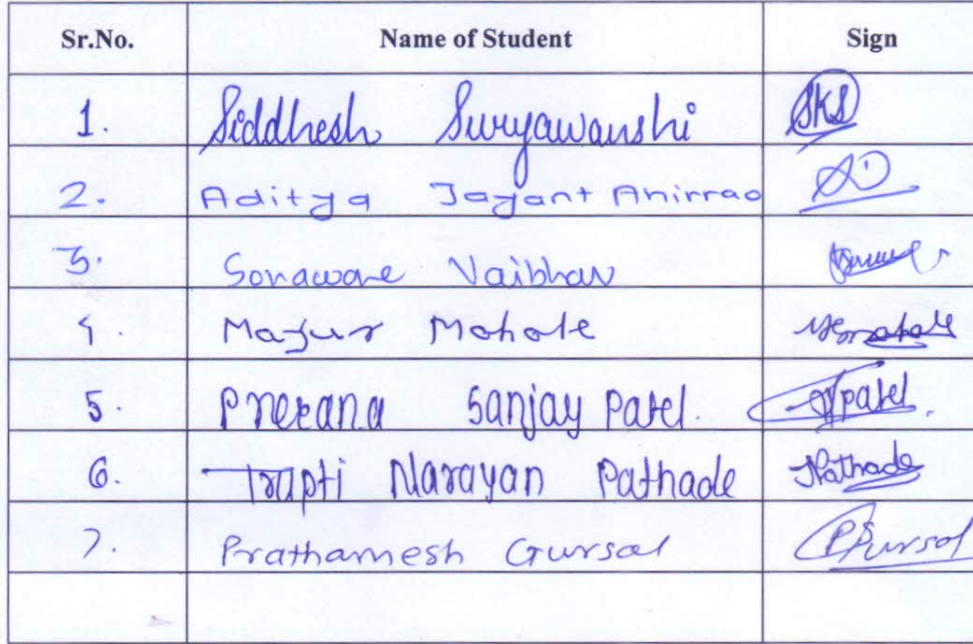 Sr.No. Name of Student Sign
1. Siddhesh Suryawanshi SKS
2. Aditya Jayant Ahirrao
3. Sonawane Vaibhav
4. Mayur Mohole
5. Prerana Sanjay Patel. Patel.
6. Trupti Narayan Pathade Pathade
7. Prathamesh Gursal PGursal